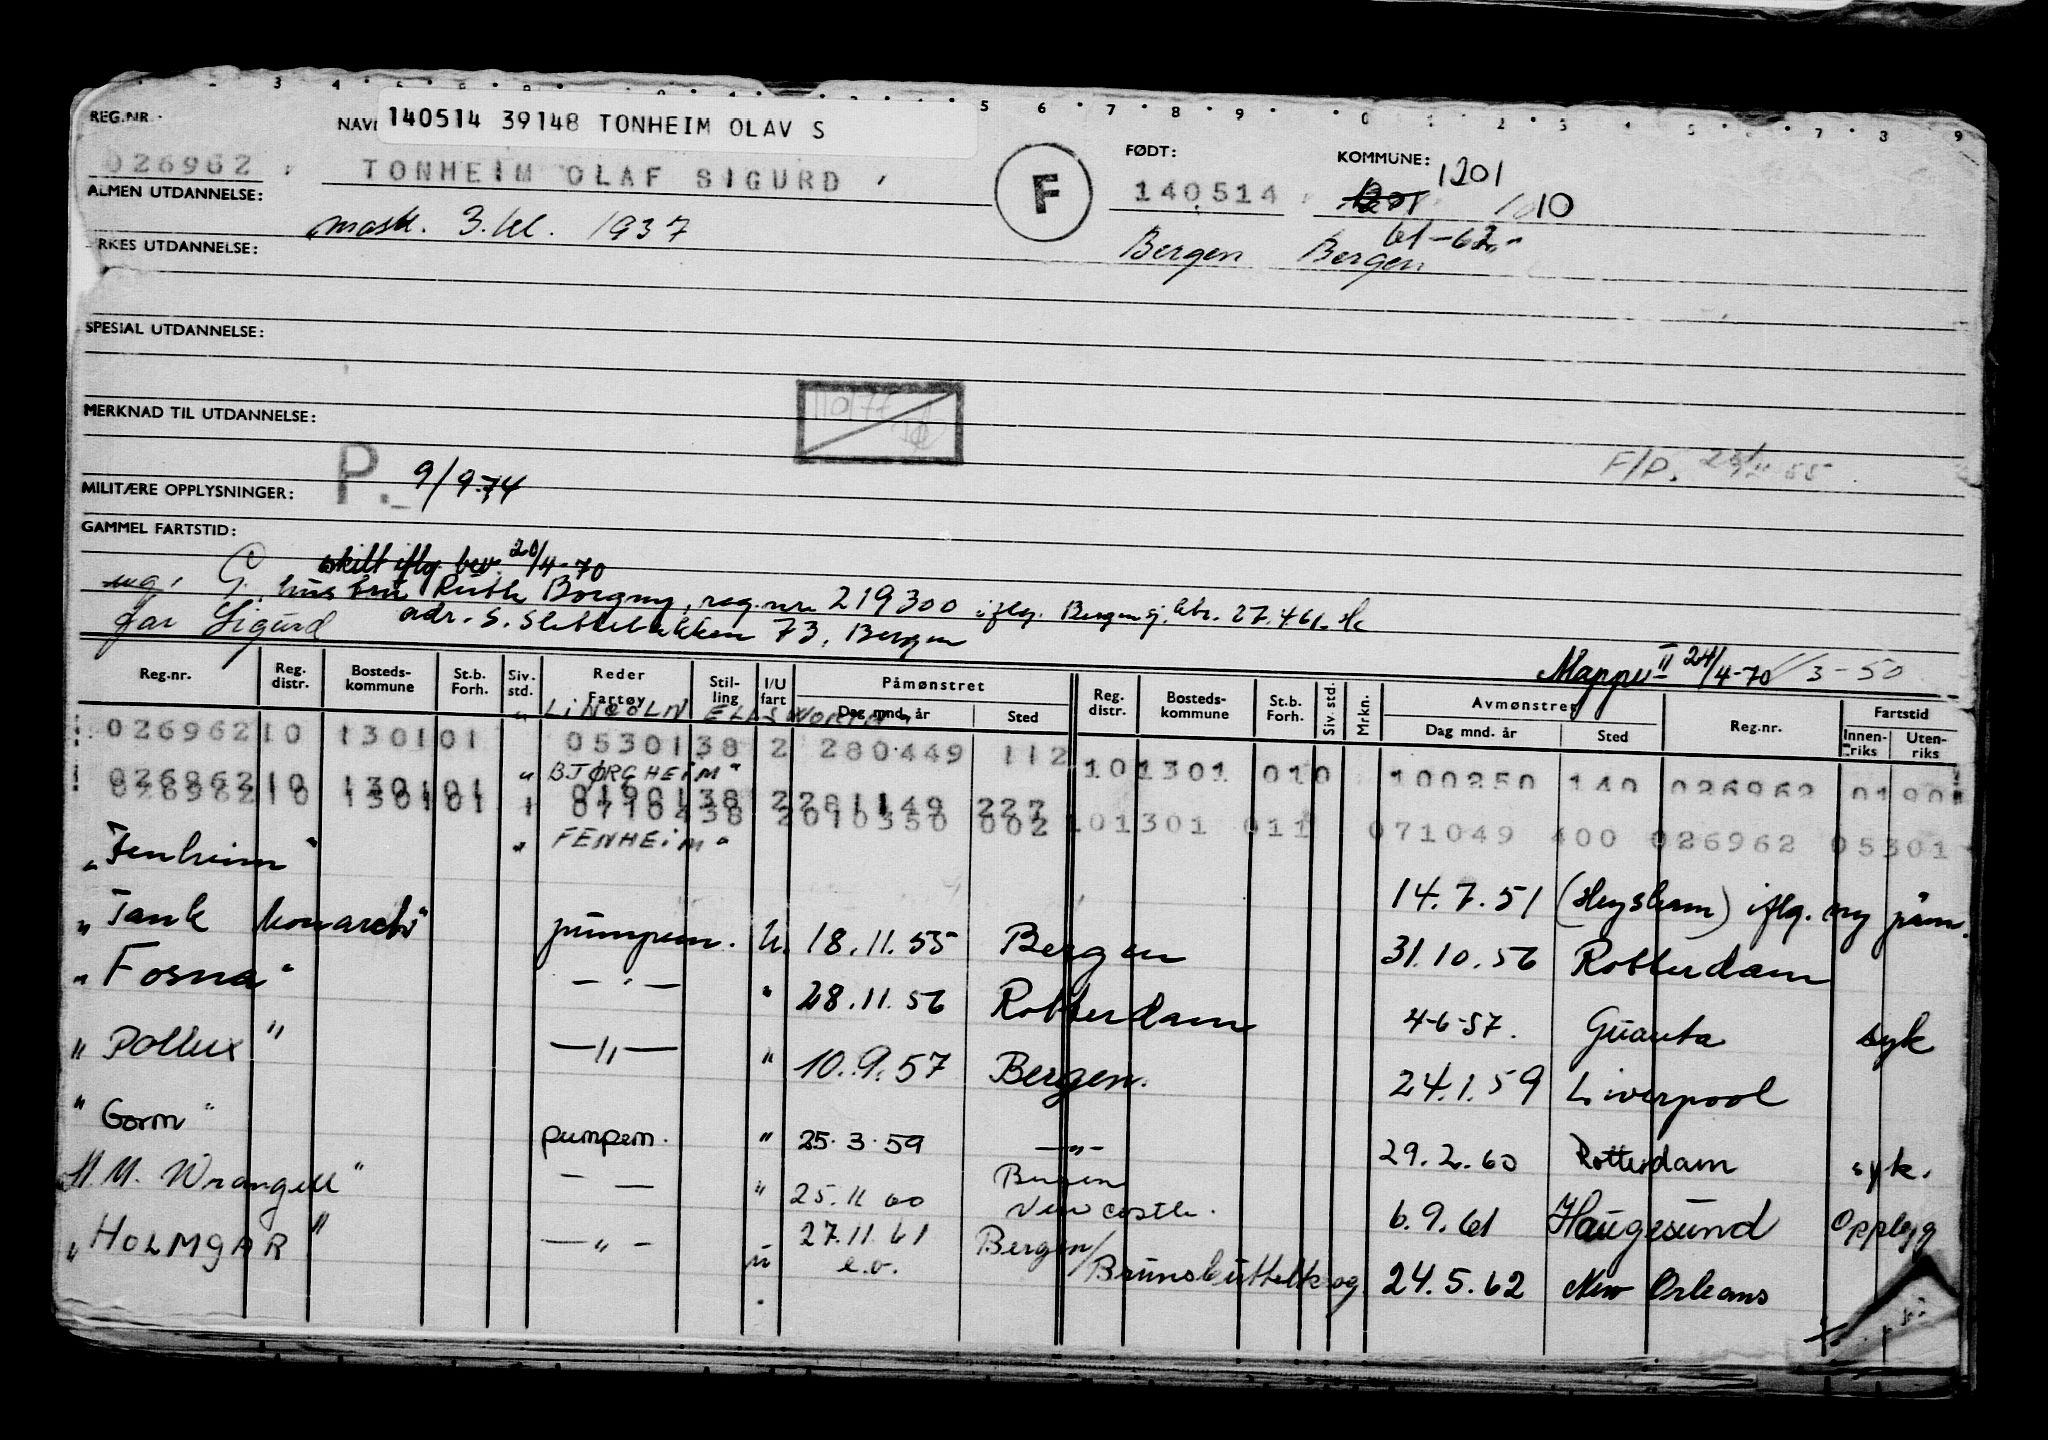 REG.NR. NAVN 140514 39148 TONHEIM OLAV S FØDT: KOMMUNE: 1201
026962 TONHEIM OLAF SIGURD F 140514 10
ALMEN UTDANNELSE: mask. 3. kl. 1937 Bergen Bergen 61-62
YRKES UTDANNELSE:
SPESIAL UTDANNELSE:
MERKNAD TIL UTDANNELSE:
F/P. 55
MILITÆRE OPPLYSNINGER: P. 9/9-74
GAMMEL FARTSTID:
skilt iflg. bev. 20/4-70
ug. G. hustru Ruth Borgny, reg.nr. 219300 iflg. Bergen sj. 27.4.61.
far Sigurd adr. S. Slettebakken 73, Bergen
Mappe II 24/4-70 /3-50
Reg.nr. Reg. distr. Bosteds-kommune St.b. Forh. Siv. std. Reder Fartøy Stil-ling I/U fart Påmønstret Dag mnd. år Sted Reg. distr. Bosteds-kommune St.b. Forh. Siv. std. Mrkn. Avmønstret Dag mnd. år Sted Reg.nr. Fartstid Innen-riks Uten-riks
"LINCOLN ELLSWORTH"
026962 10 1301 01 05301 38 2 280449 112 10 1301 01 0 100250 140 026962 01901
"BJØRGHEIM"
026962 10 1301 01 01901 38 2 281149 227
026962 10 1301 01 1 07104 38 2 010350 002 10 1301 01 1 071049 400 026962 05301
"FENHEIM"
"Fenheim" 14.7.51 (Heysham) iflg. ny påm.
"Tank Monarch" pumpem. U. 18.11.55 Bergen 31.10.56 Rotterdam
"Fosna" — " — " 28.11.56 Rotterdam 4-6-57. Guanta syk
"Pollux" — " — " 10.9.57 Bergen. 24.1.59 Liverpool
"Gorm" pumpem. " 25.3.59 — " — 29.2.60 Rotterdam syk.
"M. Wrangell" — — " 25.11.60 Bergen New castle. 6.9.61 Haugesund Opplegg
"HOLMGAR" — " — u 27.11.61 e.o. Bergen/Brunsbüttelkoog 24.5.62 New Orleans